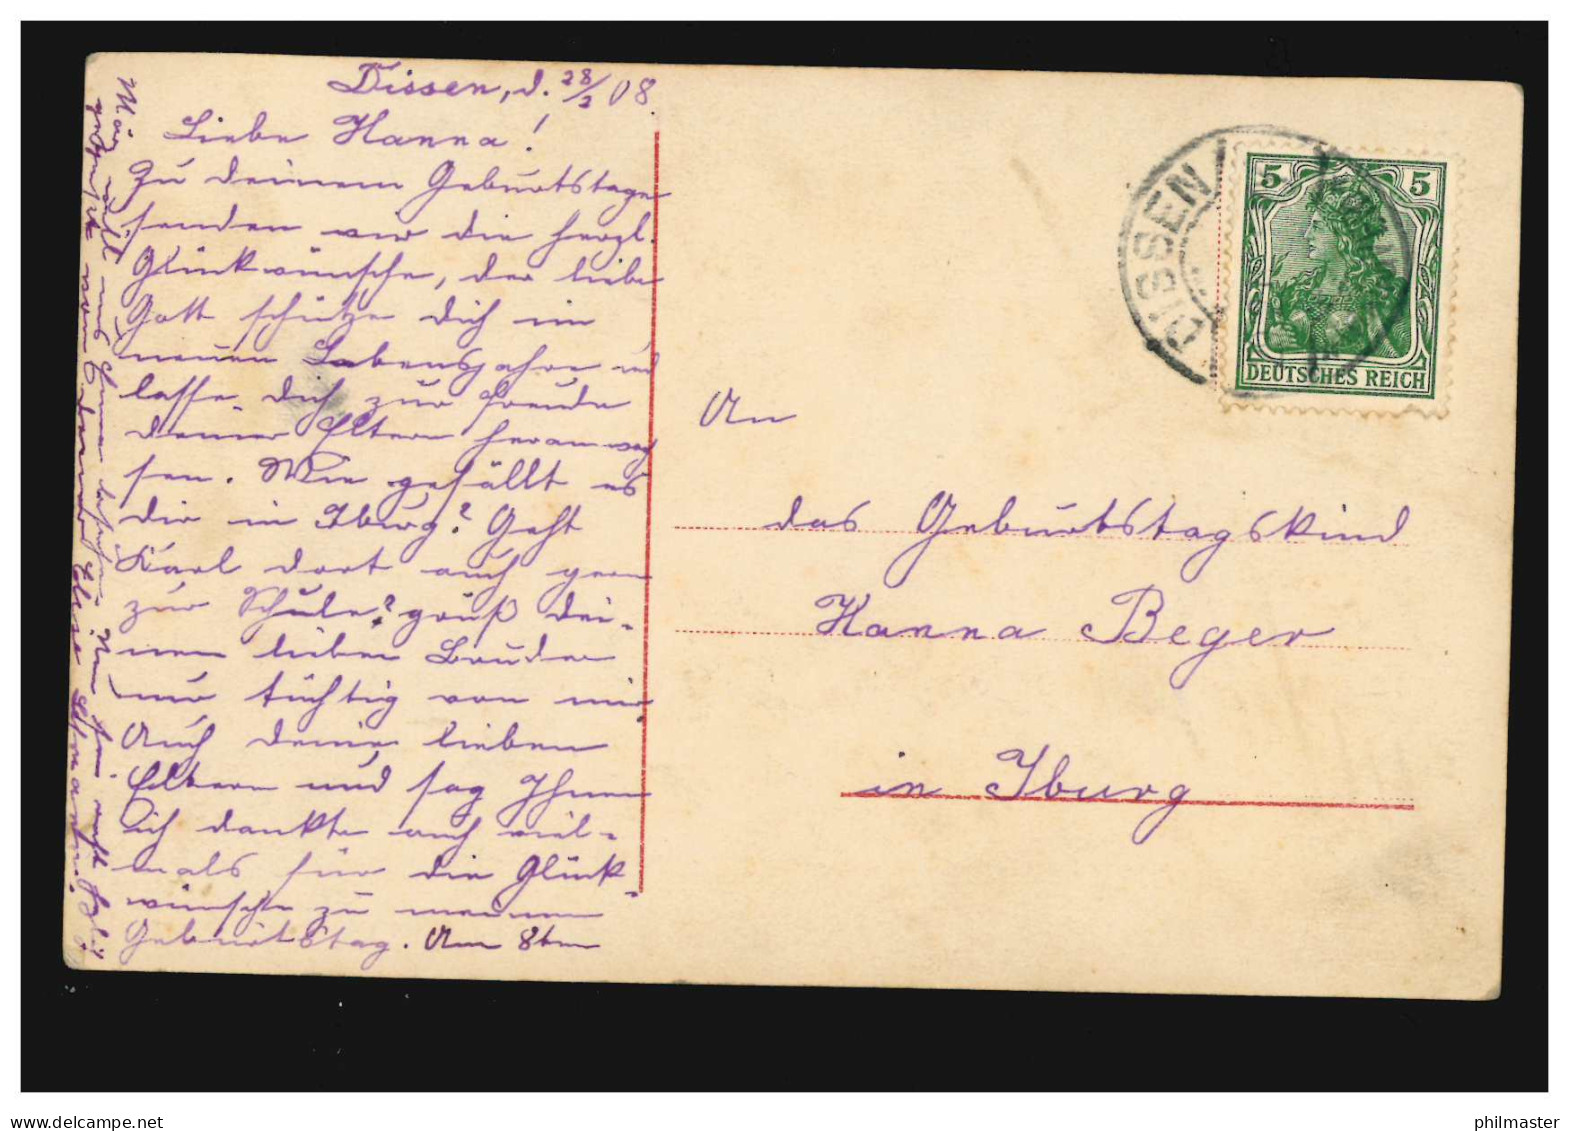 Dissen, d. 28/2 08.
Liebe Hanna!
Zu deinem Geburtstage
senden wir die herzl.
Glückwünsche, der liebe
Gott schütze dich im
neuen Lebensjahre und
lasse dich zur Freude
deiner Eltern heranwach
sen. Wie gefällt es
dir in Iburg? Geht
Karl dort auch gern
zur Schule? grüß dei-
nen lieben Bruder
nur tüchtig von mir
Auch deine lieben
Eltern und sag Ihnen
ich dankte auch viel-
mals für die Glück-
wünsche zu meinem
Geburtstag. Am 8ten
März will uns
gegrüßt von deiner Else
DISSEN
5 5
DEUTSCHES REICH
An
das Geburtstagskind
Hanna Beger
in Iburg
www.delcampe.net
philmaster